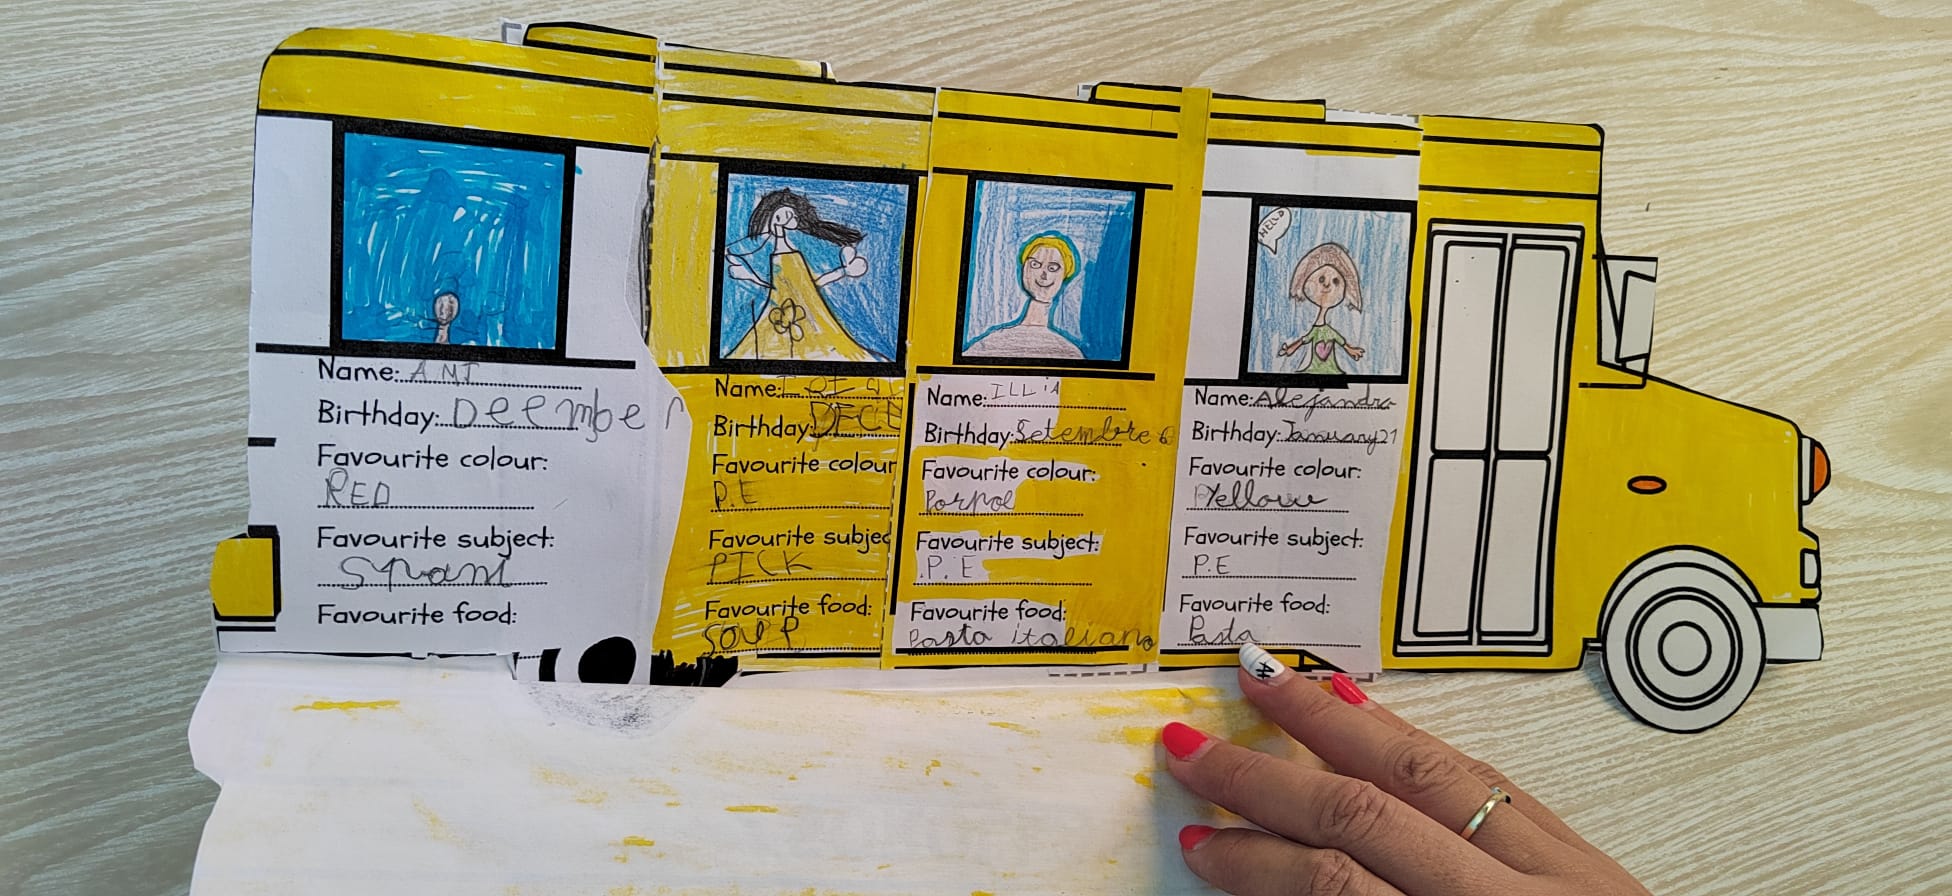 Name: AMI
Birthday: Deember
Favourite colour:
RED
Favourite subject:
Favourite food:
Name:
Birthday: DECE
Favourite colour
P.E
Favourite subjec
PICK
Favourite food:
SOUP
Name: ILLiA
Birthday: Setembre 6
Favourite colour:
Porpol
Favourite subject:
P.E
Favourite food:
Pasta italiano
HELLO
Name: Alejandra
Birthday: January 21
Favourite colour:
Yellow
Favourite subject:
P.E
Favourite food:
Pasta